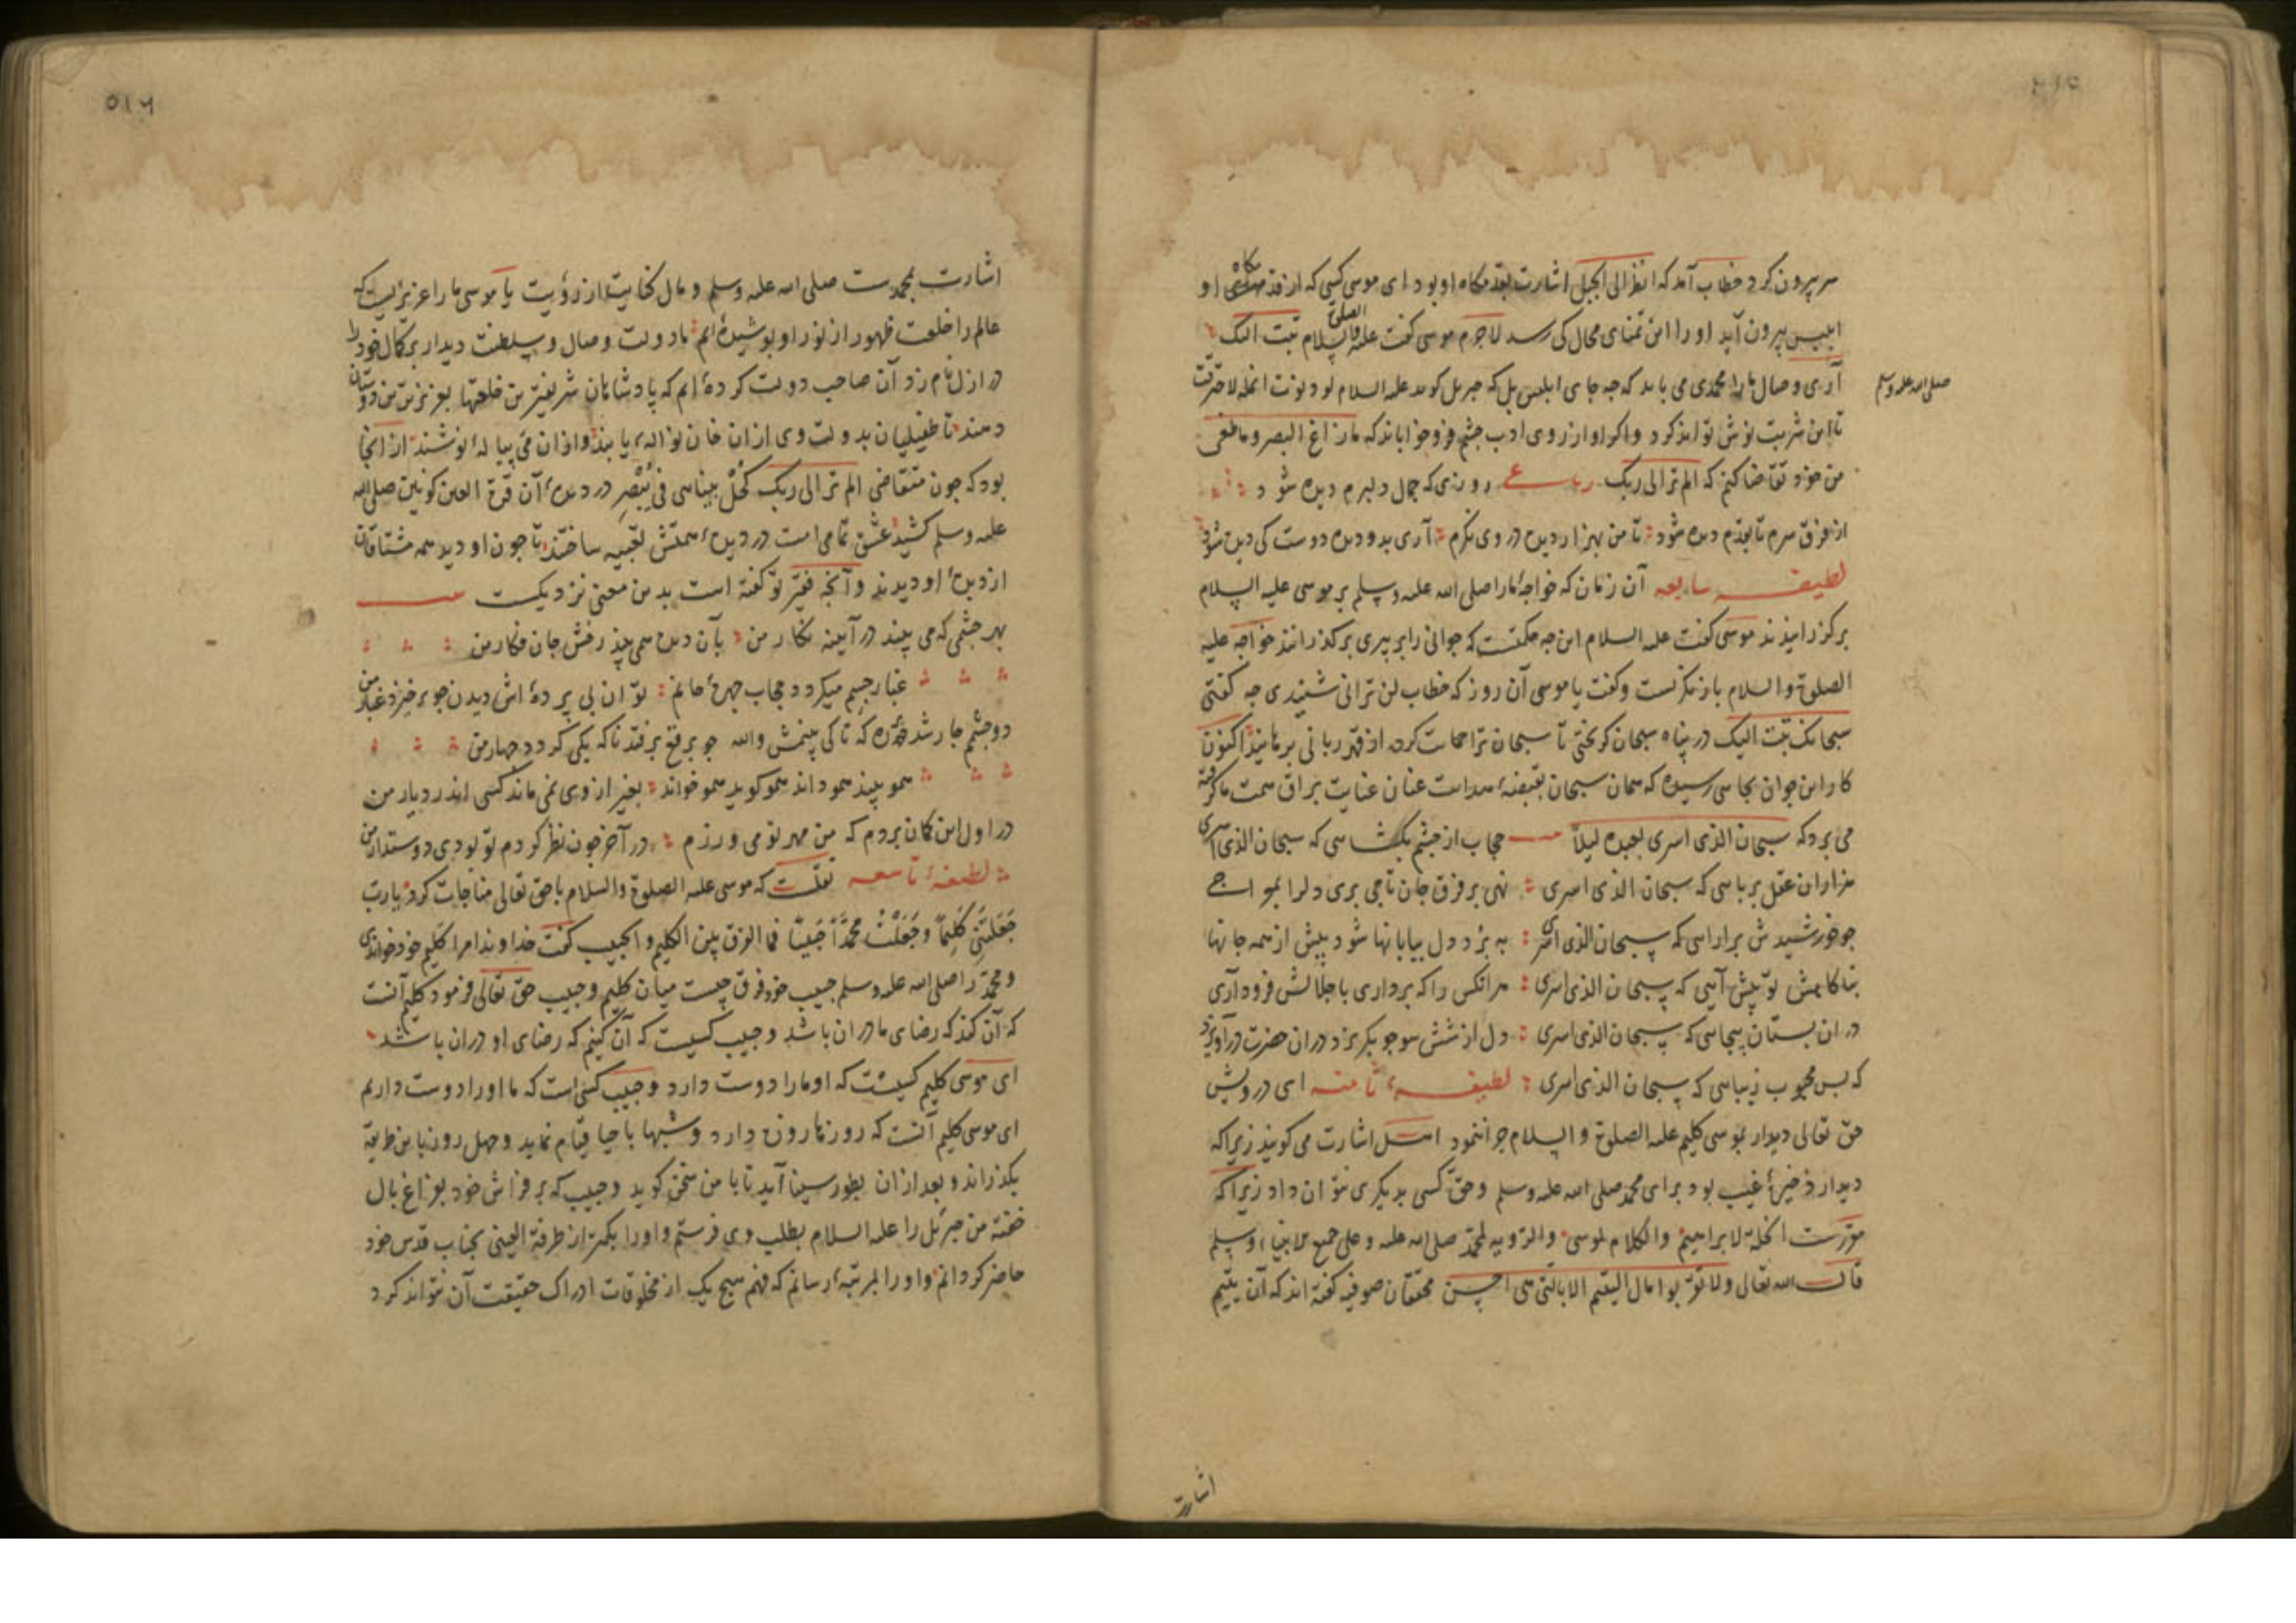 سر بیرون کرد خطاب آمد که انظر الی الجبل اشارت بقدمگاه او بود ای موسی کسی که از قدمگاهی او
ابلیس بیرون آید او را این تمنای محال کی رسد لاجرم موسی گفت علیه الصلوة والسلام تبت الیک
آری وصال ما را محمدی می باید که چه جای ابلیس بل که جبریل گوید علیه السلام لو دنوت انملة لاحترقت
صلی الله علیه وسلم
تا این شربت نوش تواند کرد واگر او از روی ادب چشم فرو خواباند که ما زاغ البصر وما طغی
من خود تقاضا کنم که الم تر الی ربک روزی که جمال دلبرم دیده شود
از فرق سرم تا بقدم دیده شود تا من بهزار دیده در وی نگرم آری بدو دیده دوست کی دیده شود
لطیفه سابعه آن زمان که خواجهٔ ما را صلی الله علیه وسلم بر موسی علیه السلام
برگذرانیدند موسی گفت علیه السلام این چه حکمتست که جوانی را بر پیری برگذرانند خواجه علیه
الصلوة والسلام باز نگریست وگفت یا موسی آن روز که خطاب لن ترانی شنیدی چه گفتی
سبحانک تبت الیک در پناه سبحان گریختی تا سبحان ترا حمایت کرده از قهر ربانی برهانید اکنون
کار این جوان بجایی رسیده که همان سبحان بقبضهٔ عنان عنایت براق همت ما گرفته
می برد که سبحان الذی اسری بعبده لیلاً حجاب از چشم بگشایی که سبحان الذی اسری
هزاران عقل بربایی که سبحان الذی اسری نهی بر فرق جان تاجی بری دلرا
چو خورشیدش برارایی که سبحان الذی اسری بپرد دل بیابانها شود پیش از همه جانها
بناگاهش تو پیش آیی که سبحان الذی اسری هر انکس را که برداری باجلالش فرود آری
در ان بستان بیجایی که سبحان الذی اسری دل از شش سو چو بگریزد در ان حضرت درآویزد
که بس محبوب زیبایی که سبحان الذی اسری لطیفهٔ ثامنه ای درویش
حق تعالی دیدار بموسی کلیم علیه الصلوة والسلام چرا ننمود اهل اشارت می گویند زیرا که
دیدار ذخیرهٔ غیب بود برای محمد صلی الله علیه وسلم وحق کسی بدیگری نتوان داد زیرا که
مقررست الخلة لابراهیم والکلام لموسی والرویه لمحمد صلی الله علیه وعلی جمیع الانبیاء وسلم
قال الله تعالی ولا تقربوا مال الیتیم الا بالتی هی احسن محققان صوفیه گفته اند که آن یتیم
اشارت
اشارت بمحمدست صلی الله علیه وسلم ومال کنایت از رؤیت یا موسی ما را عزیزیست که
عالم را خلعت ظهور از نور او پوشیده ایم تا دولت وصال وسلطنت دیدار بر کمال خود را
در ازل نام زد آن صاحب دولت کرده ایم که پادشاهان شریفترین خلعتها بعزیزترین دوستان
دهند تا طفیلیان بدولت وی ازان خوان نواله یابند وازان می پیاله نوشند از انجا
بود که چون متقاضی الم تر الی ربک کحل بینایی در دیدهٔ آن قرة العین کونین صلی الله
علیه وسلم کشید عشق تمامی امت در دیدهٔ همتش تعبیه ساختند تا چون او دید همه مشتاقان
از دیدهٔ او دیدند وآنچه فقیر تو گفته است بدین معنی نزدیکست
بهر چشمی که می بیند در آیینه نگار من بآن دیده همی بیند رخش جان فکار من
غبار جسم میگردد حجاب چهرهٔ جانم توان بی پرده اش دیدن چو برخیزد غبار من
دو چشم چار شد که تا کی بینمش والله چو برقع برفتد ناگه یکی گردد چهار من
همو بیند همو داند همو گوید همو خواند بغیر از وی نمی ماند کسی اندر دیار من
در اول این گمان بردم که من مهر تو می ورزم در آخر چون نظر کردم تو بودی دوستدار من
لطیفهٔ تاسعه نقلست که موسی علیه الصلوة والسلام با حق تعالی مناجات کرد یا رب
جَعَلْتَنِی کَلِیماً وَجَعَلْتَ مُحَمَّداً حَبِیباً فما الفرق بین الکلیم والحبیب گفت خداوندا مرا کلیم خود خواندی
ومحمد را صلی الله علیه وسلم حبیب خود فرق چیست میان کلیم وحبیب حق تعالی فرمود کلیم آنست
که آن کند که رضای ما در ان باشد وحبیب کسیست که آن کنیم که رضای او در ان باشد
ای موسی کلیم کسیست که او ما را دوست دارد وحبیب کسی است که ما او را دوست داریم
ای موسی کلیم آنست که روزها روزه دارد وشبها باحیا قیام نماید وچهل روز باین طریقه
بگذراند وبعد ازان بطور سینا آید تا با من سخن گوید وحبیب که بر فراش خود بفراغ بال
خفته من جبرئیل را علیه السلام بطلب وی فرستم واو را بکمتر از طرفة العینی بجناب قدس خود
حاضر گردانم واو را بمرتبهٔ رسانم که فهم هیچ یک از مخلوقات ادراک حقیقت آن نتواند کرد